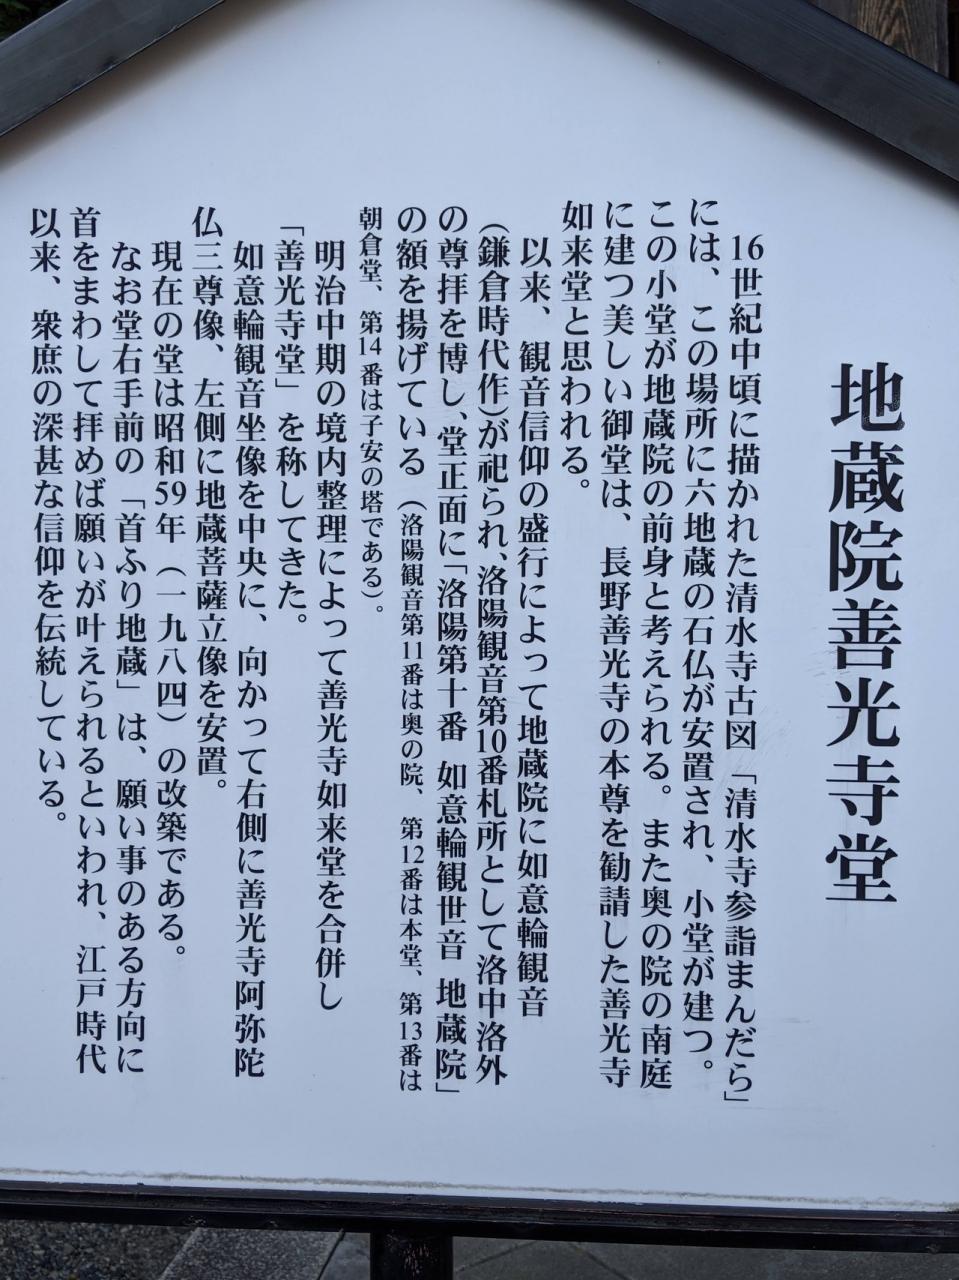 地蔵院善光寺堂
16世紀中頃に描かれた清水寺古図「清水寺参詣まんだら」
には、この場所に六地蔵の石仏が安置され、小堂が建つ。
この小堂が地蔵院の前身と考えられる。また奥の院の南庭
に建つ美しい御堂は、長野善光寺の本尊を勧請した善光寺
如来堂と思われる。
以来、観音信仰の盛行によって地蔵院に如意輪観音
(鎌倉時代作)が祀られ、洛陽観音第10番札所として洛中洛外
の尊拝を博し、堂正面に「洛陽第十番 如意輪観世音 地蔵院」
の額を揚げている(洛陽観音第11番は奥の院、第12番は本堂、第13番は
朝倉堂、第14番は子安の塔である)。
明治中期の境内整理によって善光寺如来堂を合併し
「善光寺堂」を称してきた。
如意輪観音坐像を中央に、向かって右側に善光寺阿弥陀
仏三尊像、左側に地蔵菩薩立像を安置。
現在の堂は昭和59年(一九八四)の改築である。
なお堂右手前の「首ふり地蔵」は、願い事のある方向に
首をまわして拝めば願いが叶えられるといわれ、江戸時代
以来、衆庶の深甚な信仰を伝統している。